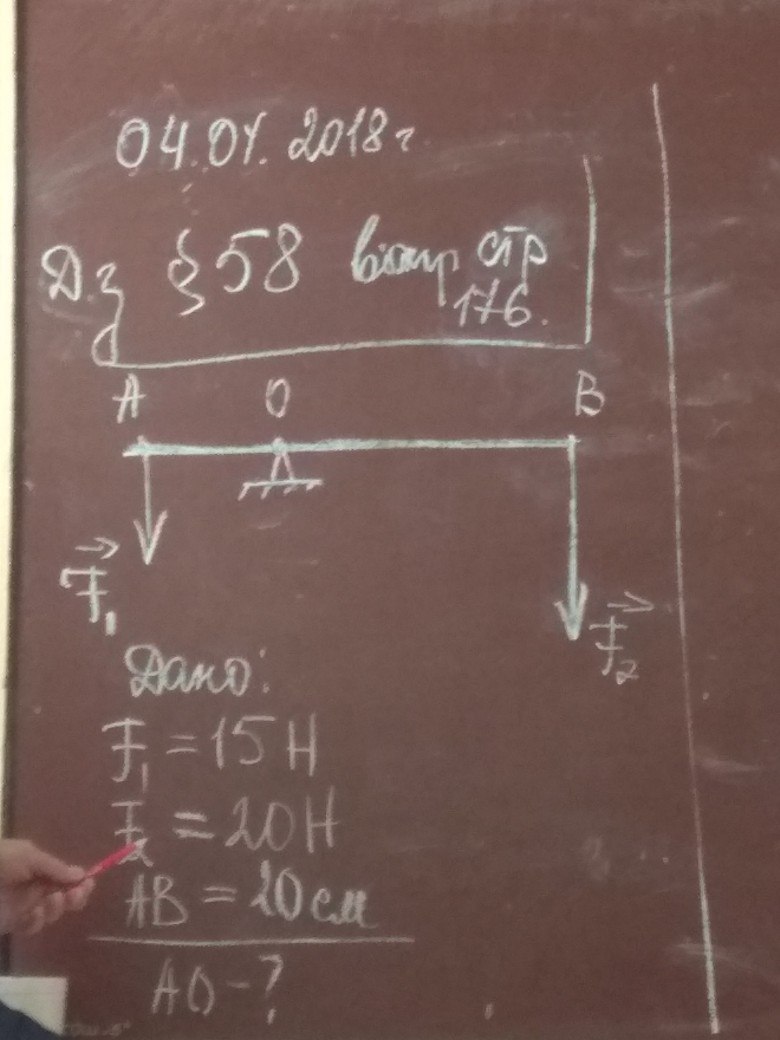 04.04.2018г
Д.з § 58 вопр стр
176.
A O B
F₁
F₂
Дано:
F₁ = 15 Н
F₂ = 20 Н
AB = 20 см
AO - ?